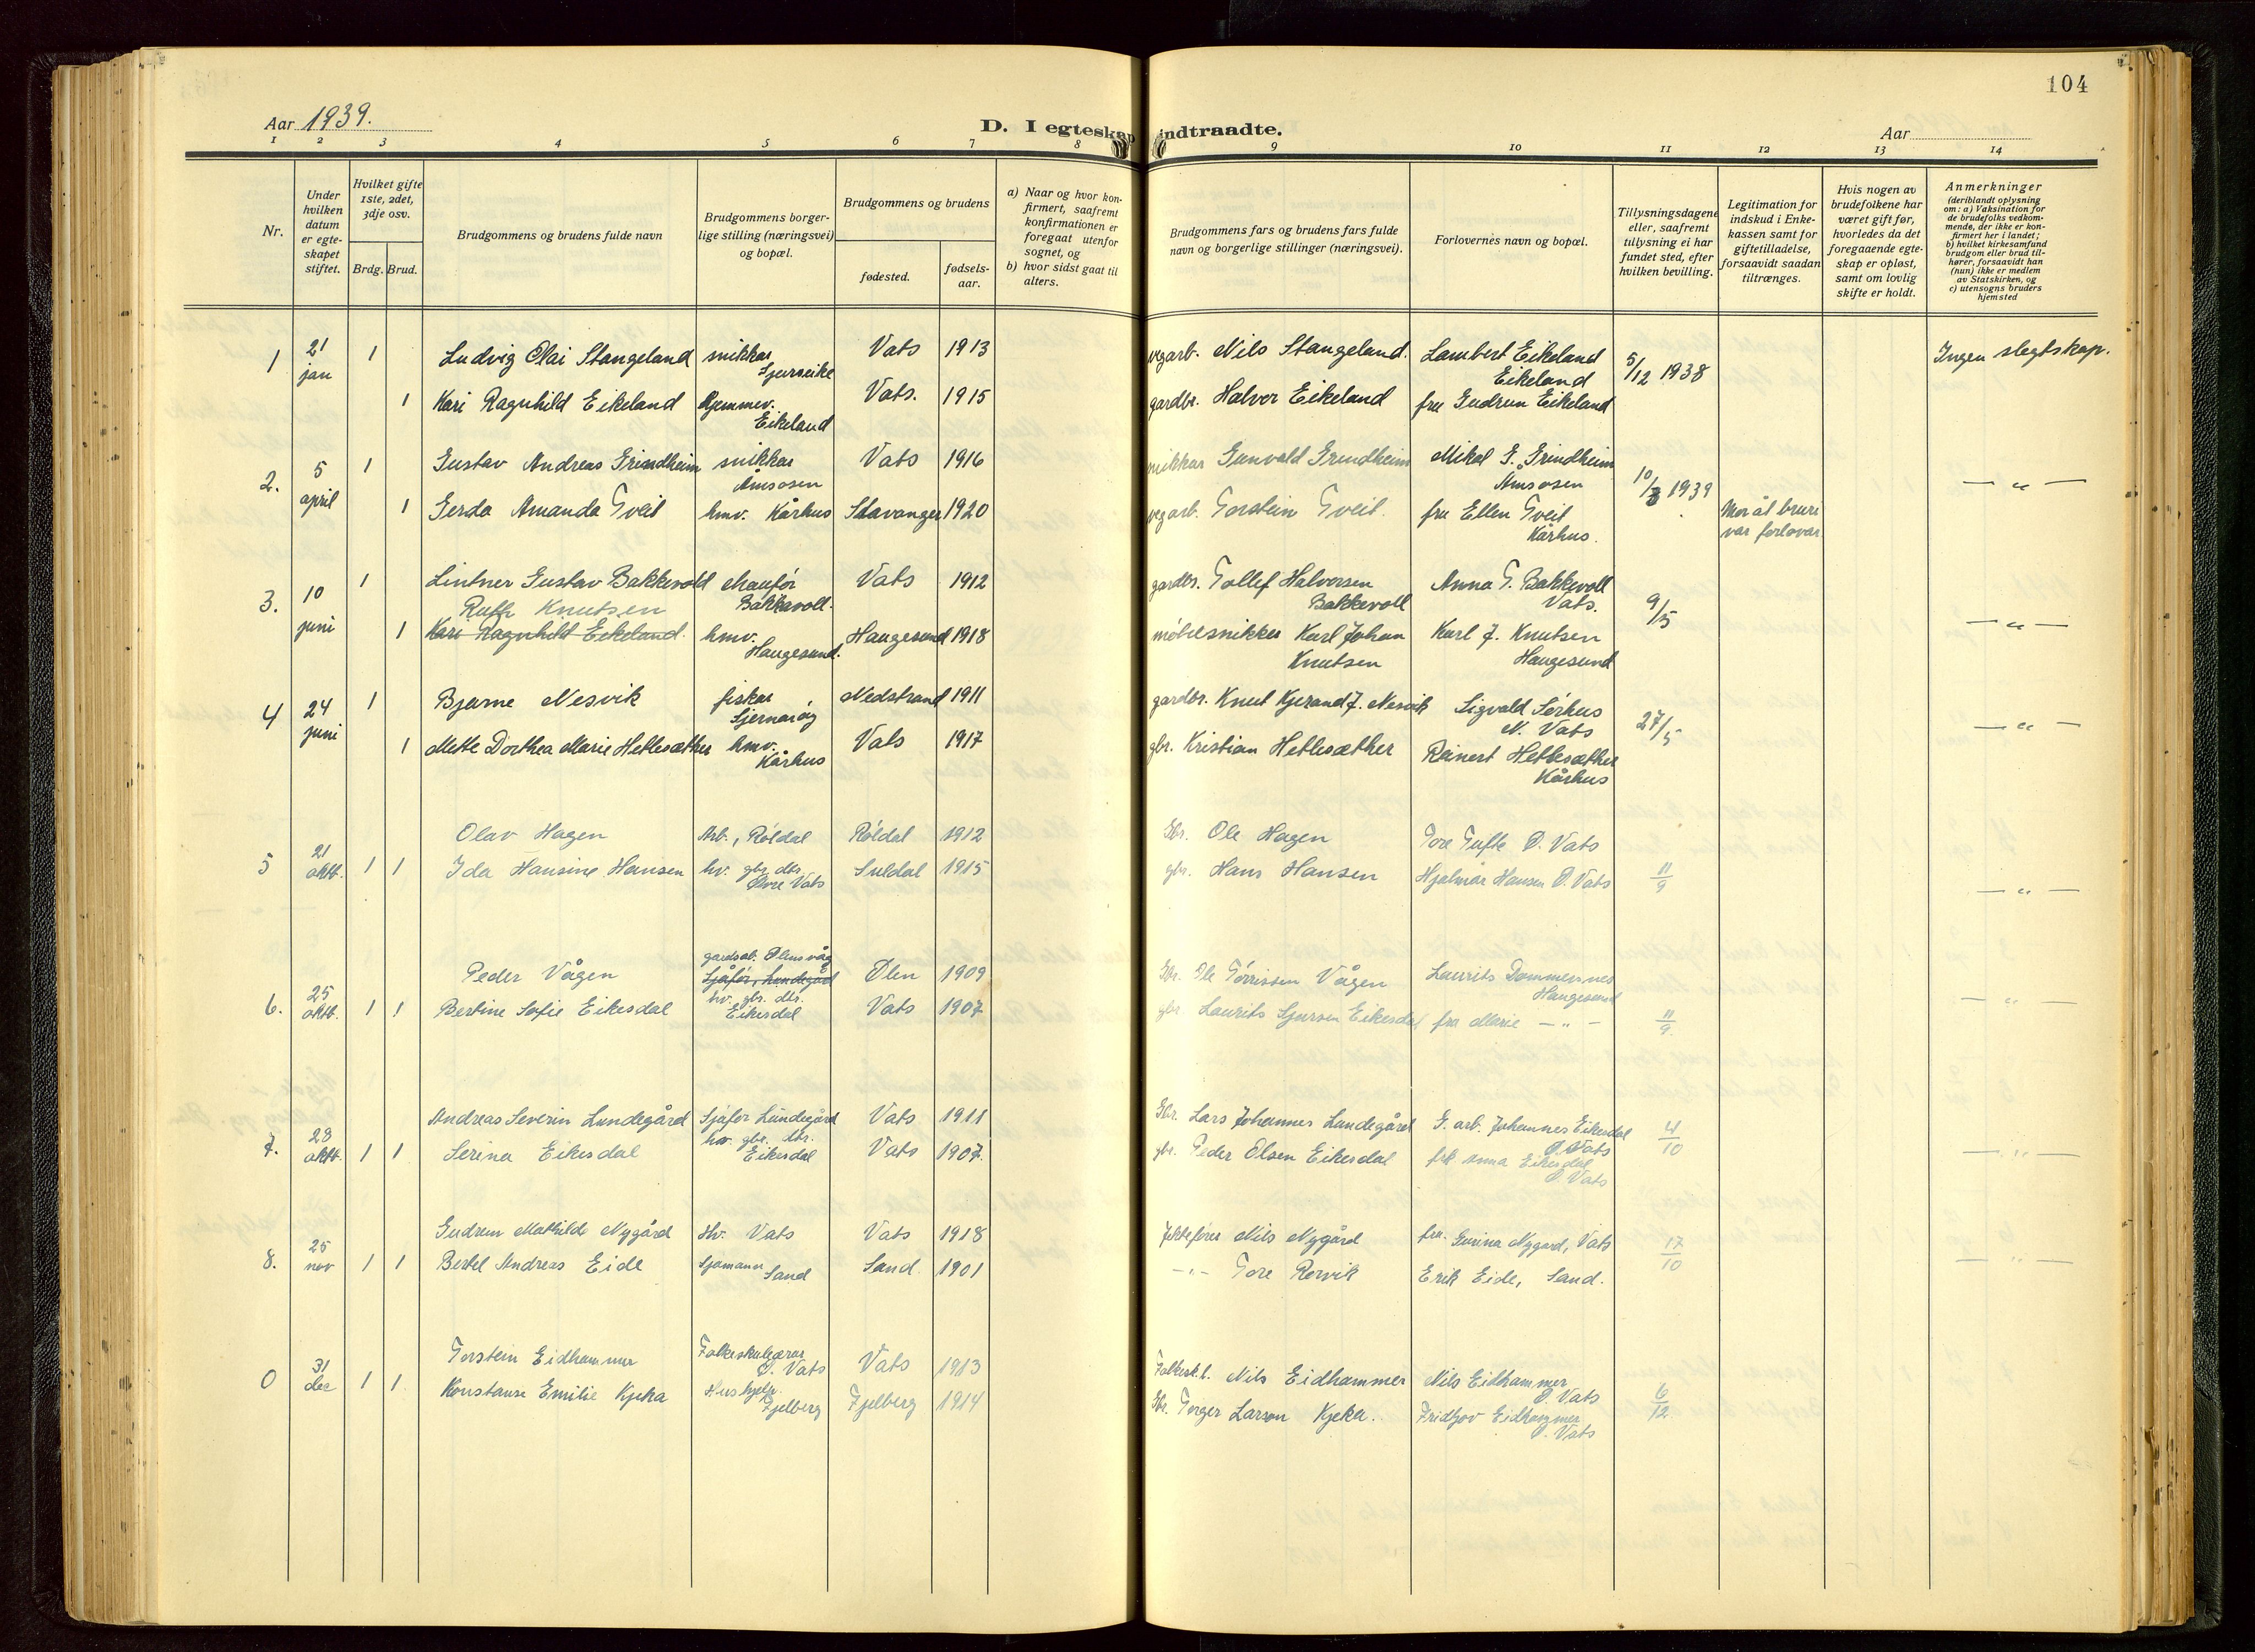 104
Aar 1939.
D. I egteskap indtraadte.
Aar
1 2 3 4 5 6 7 8 9 10 11 12 13 14
Nr.
Under hvilken datum er egteskapet stiftet.
Hvilket gifte 1ste, 2det, 3dje osv.
Brdg. Brud.
Brudgommens og brudens fulde navn
Brudgommens borgerlige stilling (næringsvei) og bopæl.
Brudgommens og brudens
fødested.
fødselsaar.
a) Naar og hvor konfirmert, saafremt konfirmationen er foregaat utenfor sognet, og
b) hvor sidst gaat til alters.
Brudgommens fars og brudens fars fulde navn og borgerlige stillinger (næringsvei).
Forlovernes navn og bopæl.
Tillysningsdagene eller, saafremt tillysning ei har fundet sted, efter hvilken bevilling.
Legitimation for indskud i Enkekassen samt for giftetilladelse, forsaavidt saadan tiltrænges.
Hvis nogen av brudefolkene har været gift før, hvorledes da det foregaaende egteskap er opløst, samt om lovlig skifte er holdt.
Anmerkninger (deriblandt oplysning om: a) Vaksination for de brudefolks vedkommende, der ikke er konfirmert her i landet; b) hvilket kirkesamfund brudgom eller brud tilhører, forsaavidt han (hun) ikke er medlem av Statskirken, og c) utensogns bruders hjemsted
1 21 jan 1 Ludvig Olai Stangeland snikkar Sjurseike Vats 1913 vegarb. Nils Stangeland. Lambert Eikeland Eikeland 5/12 1938 Ingen slegtskap.
1 Kari Ragnhild Eikeland hjemmev. Eikeland Vats. 1915 gardbr. Halvor Eikeland fru Gudrun Eikeland
2. 5 april 1 Gustav Andreas Grindheim snikkar Åmsosen Vats 1916 snikkar Gunvald Grindheim Mikal G. Grindheim Åmsosen 10/3 1939 — " —
1 Gerda Amanda Tveit hmv. Kårhus Stavanger 1920 vegarb. Torstein Tveit. fru Ellen Tveit Kårhus. Mor åt bruri var forlovar
3. 10 juni 1 Lintner Gustav Bakkevold chaufør Bakkavoll. Vats 1912 gardbr. Tollef Halvorsen Bakkevoll Anna T. Bakkevoll Vats. 9/5 — " —
Ruth Knutsen
1 Kari Ragnhild Eikeland. hmv. Haugesund. Haugesund 1918 møbelsnikker Karl Johan Knutsen Karl J. Knutsen Haugesund
4 24 juni 1 Bjarne Nesvik fiskar Sjernarøy Nedstrand 1911 gardbr. Knut Kjerand J. Nesvik Sigvald Sørhus N. Vats 27/5 — " —
1 Mette Dorthea Marie Hettesæther hmv. Kårhus Vats 1917 gbr. Kristian Hettesæther Reinert Hettesæther Kårhus
Olav Hagen Arb., Røldal Røldal 1912 Gbr. Ole Hagen Tore Tufte Ø. Vats
5 21 okt. 1 1 Ida Hansine Hansen hv. gbr. dtr. Øvre Vats Suldal 1915 gbr. Hans Hansen Hjalmar Hansen Ø. Vats 11/9 — " —
Peder Vågen gardsab. Ølensvåg Sjåfør, Lundegård Ølen 1909 Gbr. Ole Tørrissen Vågen Laurits Dommersnes Haugesund
6. 25 oktb. 1 1 Bertine Sofie Eikesdal hv. gbr. dtr. Eikesdal Vats 1907 gbr Laurits Sjursen Eikesdal fra Marie — " — 11/9 — " —
Andreas Severin Lundegård Sjåfør Lundegård Vats 1911 Gbr. Lars Johannes Lundegård G. arb. Johannes Eikesdal Ø. Vats
7. 28 oktb. 1 1 Serina Eikesdal hv. gbr. dtr. Eikesdal Vats 1907. gbr. Peder Olsen Eikesdal frk Anna Eikesdal Ø Vats 4/10 — " —
Gudrun Mathilde Nygård Hv. Vats Vats 1918 Jektefører Nils Nygård fru. Gurina Nygard, Vats
8. 25 nov 1 1 Bertel Andreas Eide Sjømann Sand Sand. 1901 — " — Tore Rørvik Erik Eide, Sand. 17/10 — " —
Torstein Eidhammer Folkeskulelærar Ø. Vats Vats 1913 Folkeskl. Nils Eidhammer Nils Eidhammer Ø. Vats
0 31 des 1 1 Konstanse Emilie Kjeka Hushjelp. Fjelberg Fjelberg 1914 Gbr. Torger Larson Kjeka. Fridtjov Eidhammer Ø. Vats 6/12